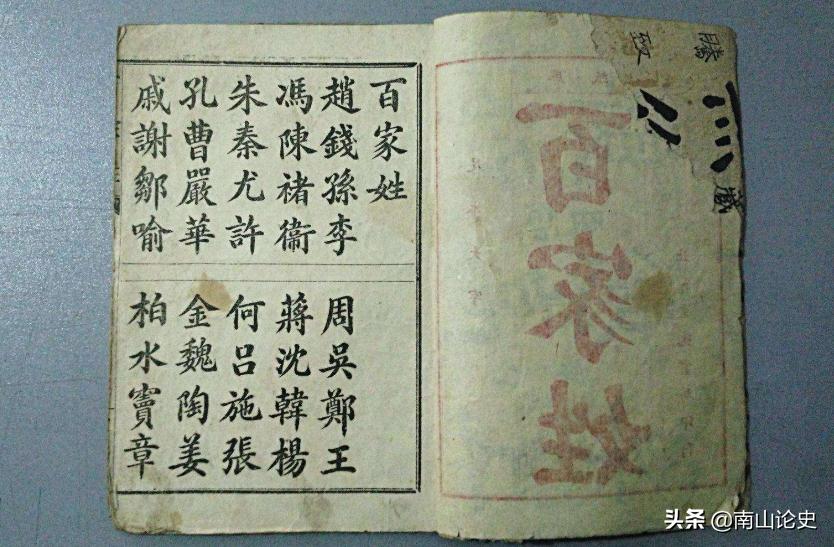 百家姓
百家姓
趙錢孫李
周吳鄭王
馮陳褚衞
蔣沈韓楊
朱秦尤許
何吕施張
孔曹嚴華
金魏陶姜
戚謝鄒喻
柏水竇章
头条 @南山论史